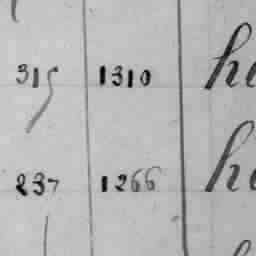 315 1310 he
237 1266 he